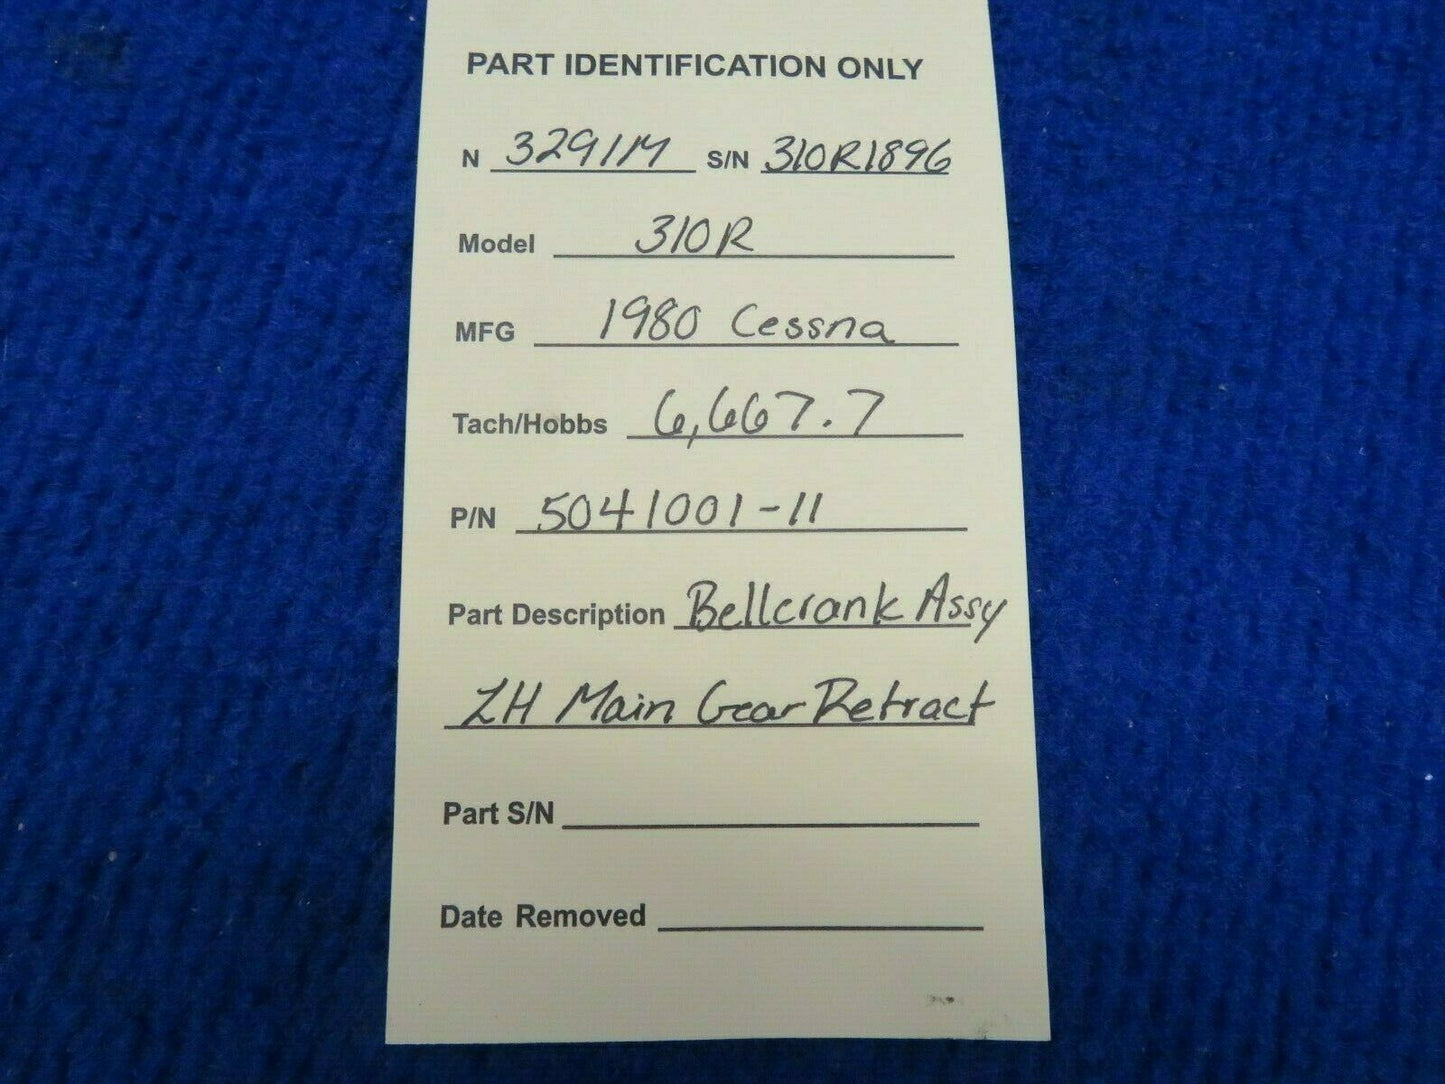 PART IDENTIFICATION ONLY
N 3291M S/N 310R1896
Model 310R
MFG 1980 Cessna
Tach/Hobbs 6,667.7
P/N 5041001-11
Part Description Bellcrank Assy
LH Main Gear Retract
Part S/N
Date Removed